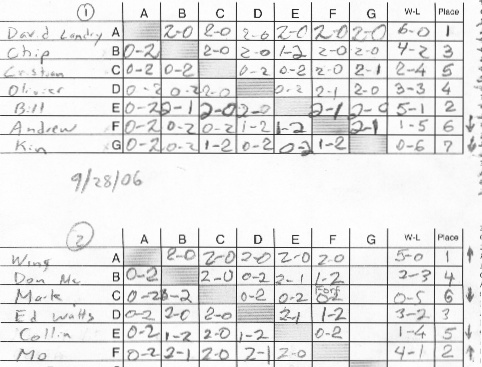 1
A B C D E F G W-L Place
David Landry A 2-0 2-0 2-0 2-0 2-0 2-0 6-0 1
Chip B 0-2 2-0 2-0 1-2 2-0 2-0 4-2 3
Cristian C 0-2 0-2 0-2 0-2 2-0 2-1 2-4 5
Olivier D 0-2 0-2 2-0 0-2 2-1 2-0 3-3 4
Bill E 0-2 2-1 2-0 2-0 2-1 2-0 5-1 2
Andrew F 0-2 0-2 0-2 1-2 1-2 2-1 1-5 6 ↓
Kin G 0-2 0-2 1-2 0-2 0-2 1-2 0-6 7 ↓
9/28/06
2
A B C D E F G W-L Place
Wing A 2-0 2-0 2-0 2-0 2-0 5-0 1 ↑
Don Mc B 0-2 2-0 0-2 2-1 1-2 2-3 4
Mark C 0-2 0-2 0-2 0-2 Forf 0-2 0-5 6 ↓
Ed Watts D 0-2 2-0 2-0 2-1 1-2 3-2 3
Collin E 0-2 1-2 2-0 1-2 0-2 1-4 5 ↓
Mo F 0-2 2-1 2-0 2-1 2-0 4-1 2 ↑